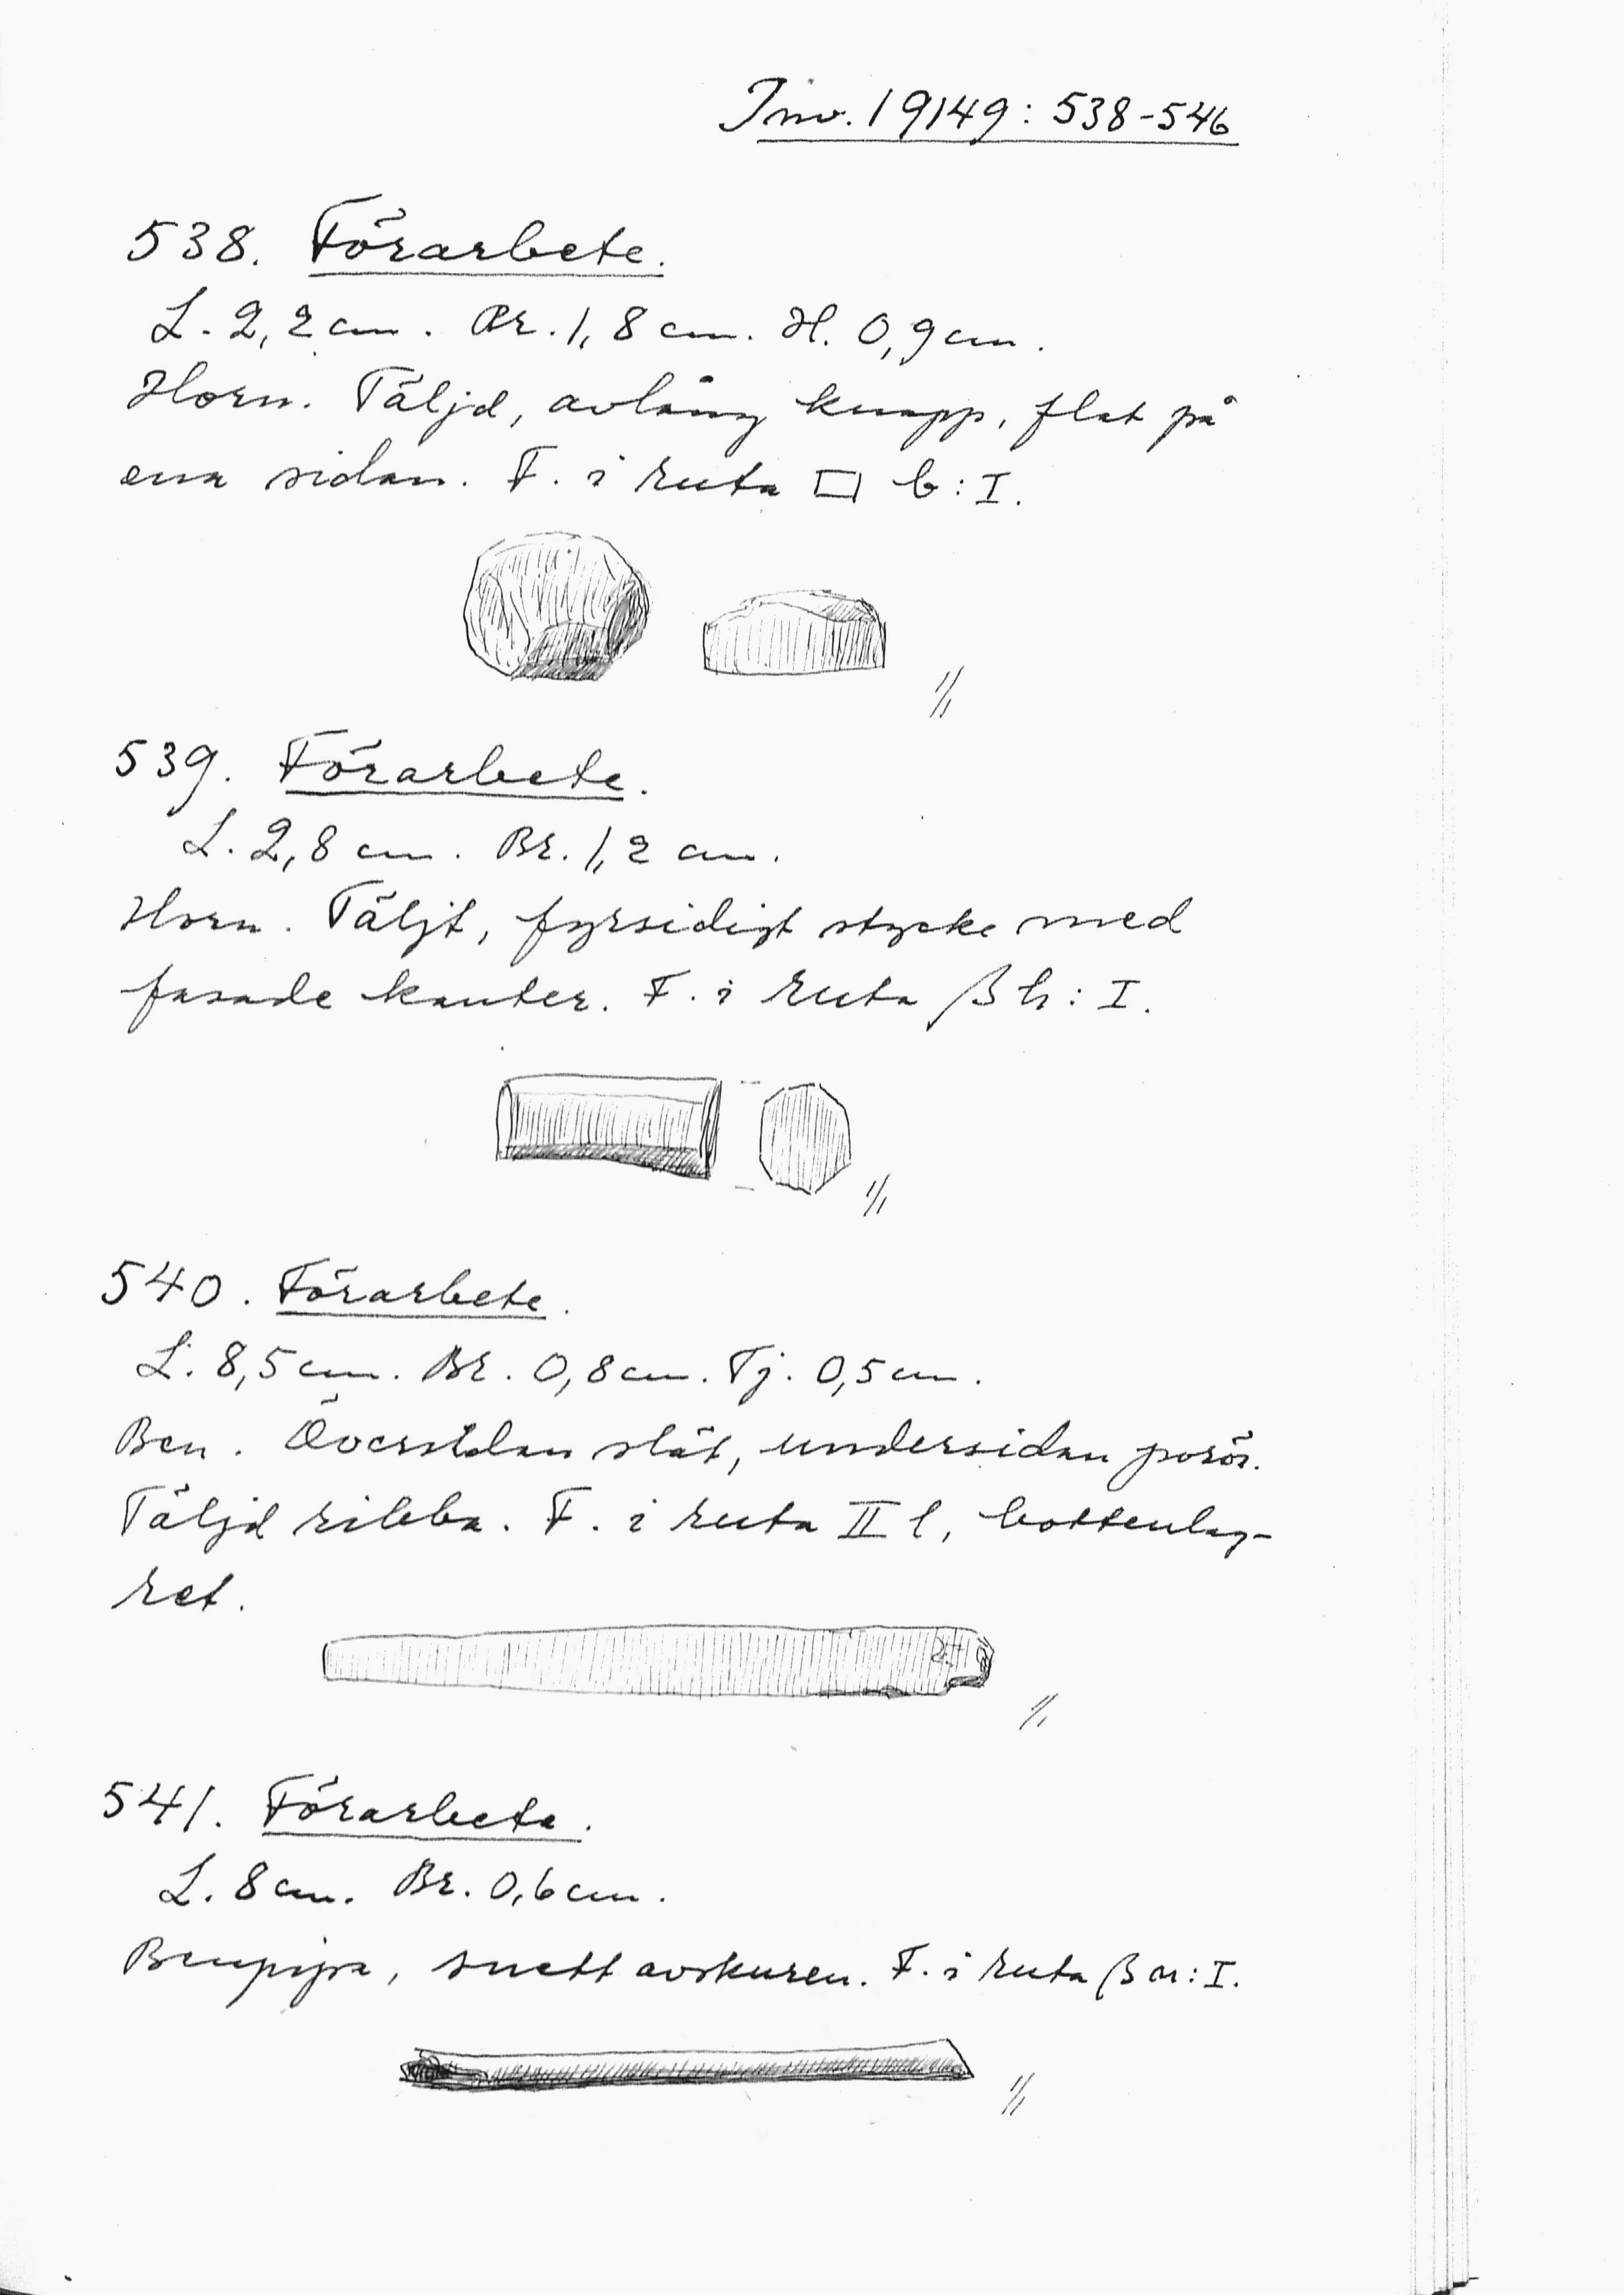 Inv. 19149: 538-546
538. Förarbete.
L. 2,2 cm. Br. 1,8 cm. H. 0,9 cm.
Horn. Täljd, avlång knapp, flat på
ena sidan. F. i ruta □ b: I.
1/1
539. Förarbete.
L. 2,8 cm. Br. 1,2 cm.
Horn. Täljt, fyrsidigt stycke med
fasade kanter. F. i ruta β h: I.
1/1
540. Förarbete.
L. 8,5 cm. Br. 0,8 cm. Tj. 0,5 cm.
Ben. Översidan slät, undersidan porös.
Täljd ribba. F. i ruta II l, bottenlag-
ret.
1/1
541. Förarbete.
L. 8 cm. Br. 0,6 cm.
Benpipa, snett avskuren. F. i ruta β : I.
1/1